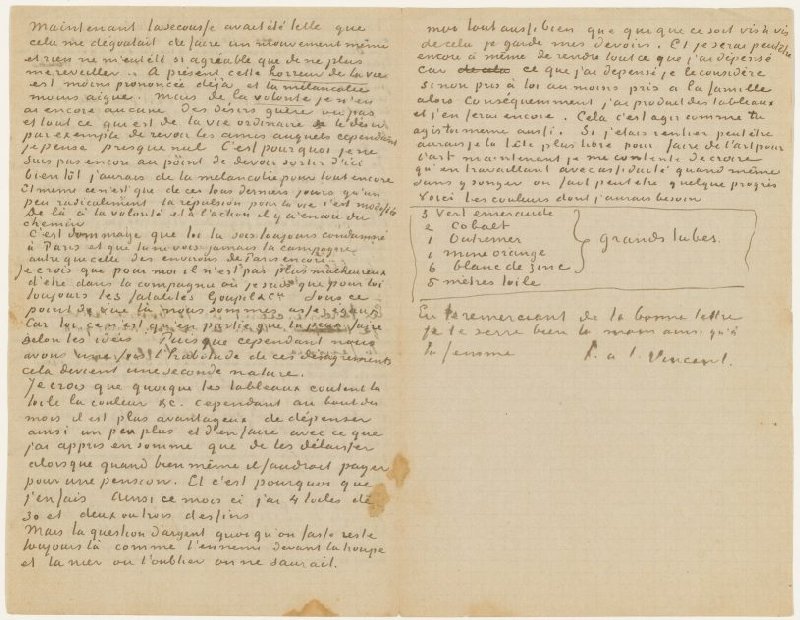 Maintenant la secousse avait été telle que
cela me dégoutait de faire un mouvement même
et rien ne m'eut été si agréable que de ne plus
me reveiller. A présent cette horreur de la vie
est moins prononcée déjà et la mélancolie
moins aigue. Mais de la volonté je n'en
ai encore aucune des désirs guère ou pas
et tout ce que est de la vie ordinaire le désir
par exemple de revoir les amis auxquels cependant
je pense presque nul. C'est pourquoi je ne
suis pas encore au point de devoir sortir d'ici
bientôt j'aurais de la mélancolie pour tout encore
Et meme ce n'est que de ces tous derniers jours qu'un
peu radicalement la répulsion pour la vie s'est modifiée
De là à la volonté et à l'action il y a encore du
chemin
C'est dommage que toi tu sois toujours condamné
à Paris et que tu ne vois jamais la campagne
autre que celle des environs de Paris encore.
Je crois que pour moi il n'est pas plus malheureux
d'être dans la compagnie où je suis que pour toi
toujours les fatalités Goupil & Cie. Sous ce
point de vue là nous sommes assez égaux
Car toi ce n'est qu'en partie que tu peux faire
selon tes idées Puisque cependant nous
avons une fois l'habitude de ces désagréments
cela devient une seconde nature.
Je crois que quoique les tableaux coutent la
toile la couleur &c. cependant au bout du
mois il est plus avantageux de dépenser
ainsi un peu plus et d'en faire avec ce que
j'ai appris en somme que de les délaisser
alors que quand bien même il faudrait payer
pour une pension. Et c'est pourquoi que
j'en fais Ainsi ce mois ci j'ai 4 toiles de
30 et deux ou trois dessins
Mais la question d'argent quoi qu'on fasse reste
toujours là comme l'ennemi devant la troupe
et la nier ou l'oublier on ne saurait.
moi tout aussi bien que qui que ce soit vis à vis
de cela je garde mes devoirs. Et je serai peut être
encore à même de rendre tout ce que j'ai dépensé
car ce que j'ai dépensé je le considère
sinon pris à toi au moins pris à la famille
alors conséquemment j'ai produit des tableaux
et j'en ferai encore. Cela c'est agir comme tu
agis toi même aussi. Si j'étais rentier peut être
aurais je la tête plus libre pour faire de l'art pour
l'art maintenant je me contente de croire
qu'en travaillant avec assiduité quand même
sans y songer on fait peut etre quelque progrès
Voici les couleurs dont j'aurais besoin
3 Vert emeraude
2 Cobalt
1 Outremer
1 mine orange
6 blanc de zinc
grands tubes.
5 mètres toile
En te remerciant de ta bonne lettre
je te serre bien la main ainsi qu'à
ta femme t. à t. Vincent.